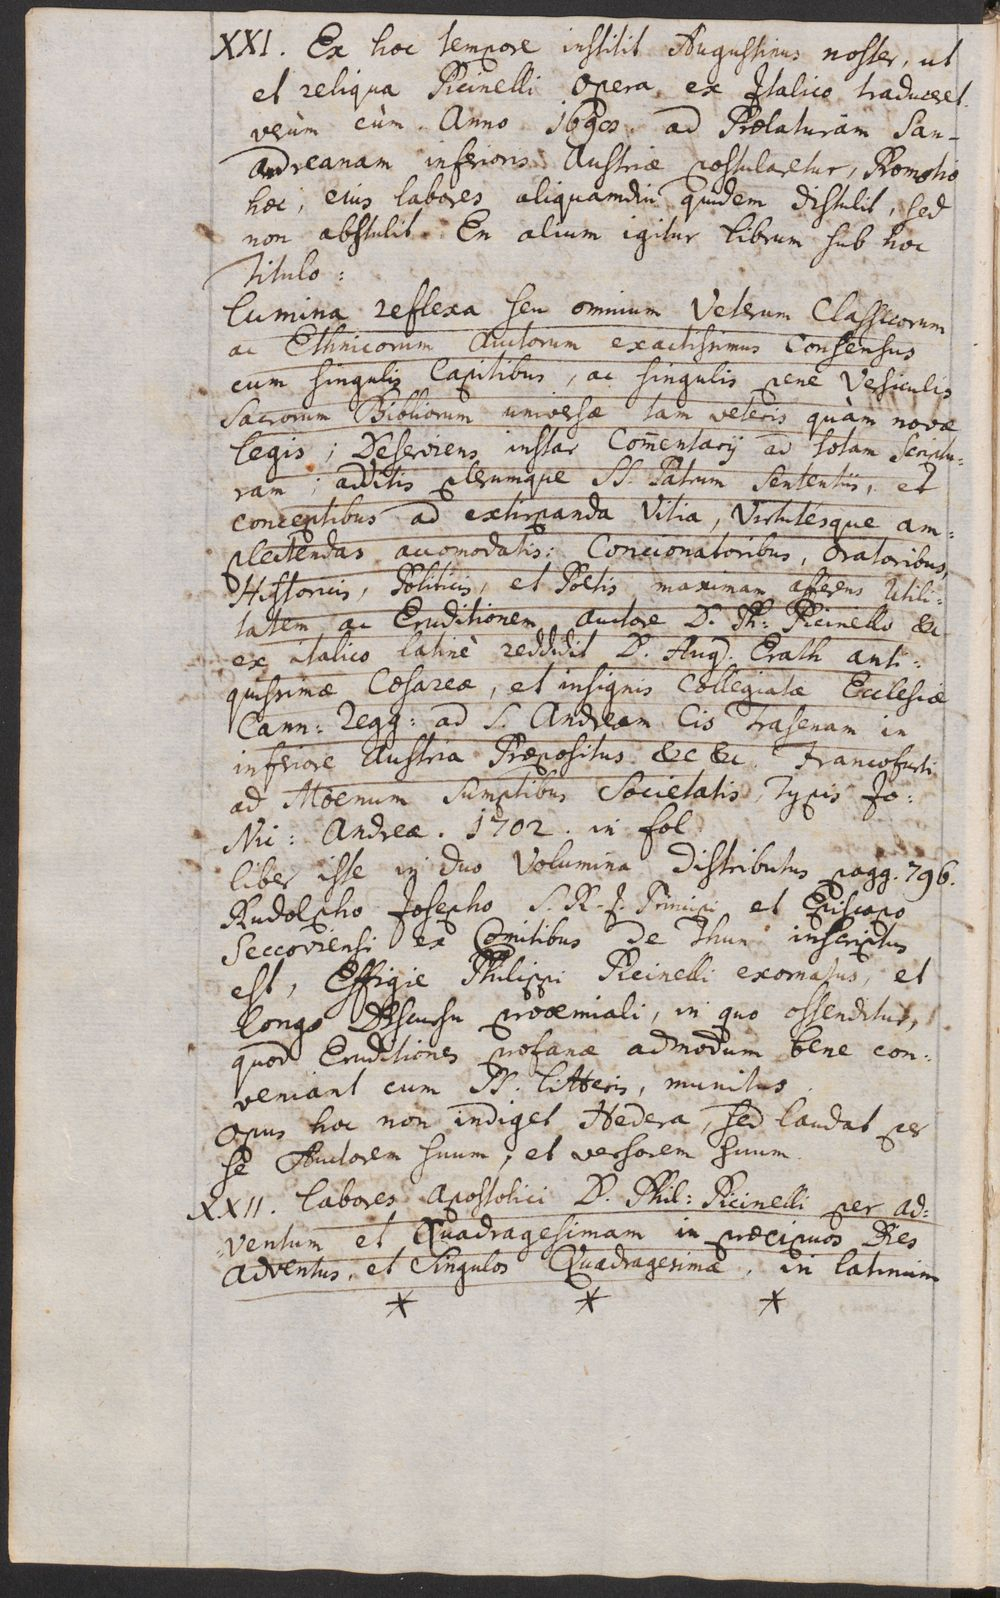 XXI. Ex hoc tempore institit Augustinus noster, ut
et reliqua Picinelli opera ex Italico traduceret.
verùm cùm Anno ad Prælaturam San-
Andreanam inferioris Austriæ postularetur, Promotio
hæc, eius labores aliquamdiu quidem distulit, sed
non abstulit. En alium igitur librum sub hoc
Titulo:
Lumina reflexa seu omnium Veterum Classicorum
ac Ethnicorum Auctorum exactissimus Consensus
cum singulis Capitibus, ac singulis pene Versiculis
Sacrorum Bibliorum universæ tam veteris quàm novæ
legis; Deserviens instar Com̄entarij ad totam Scriptu=
ram; additis plerumque SS. Patrum Sententiis, et
conceptibus ad extirpanda Vitia, Virtutesque am=
plectendas accomodatis: Concionatoribus, Oratoribus,
Historicis, Politicis, et Poëtis maximam afferens Utili=
tatem ac Eruditionem Auctore D. Ph: Picinello &c
ex italico latinè reddidit D. Aug. Erath anti=
quissimæ Cæsareæ, et insignis Collegiatæ Ecclesiæ
Cann: Regg: ad S. Andream Cis Trasenam in
inferiore Austria Præpositus &c &c. Francofurti
ad Moenum Sumptibus Societatis, Typis Jo:
Nic: Andreæ. 1702. in fol
liber iste in duo Volumina distributus pagg. 796.
Rudolpho Josepho S. R. J. Principi et Episcopo
Seccoviensi ex Comitibus de Thun inscriptus
est, Effigie Philippi Picinelli exornatus, et
longo Discursu prooemiali, in quo ostenditur,
quod Eruditiones profanæ admodum bene con=
veniant cum SS. Litteris, munitus.
Opus hoc non indiget Hedera, sed laudat per
se Auctorem suum, et versorem suum.
XXII. Labores Apostolici D. Phil: Picinelli per ad=
ventum et Quadragesimam in præcipuos Dies
Adventus, et Singulos Quadragesimæ, in latinum
* * *